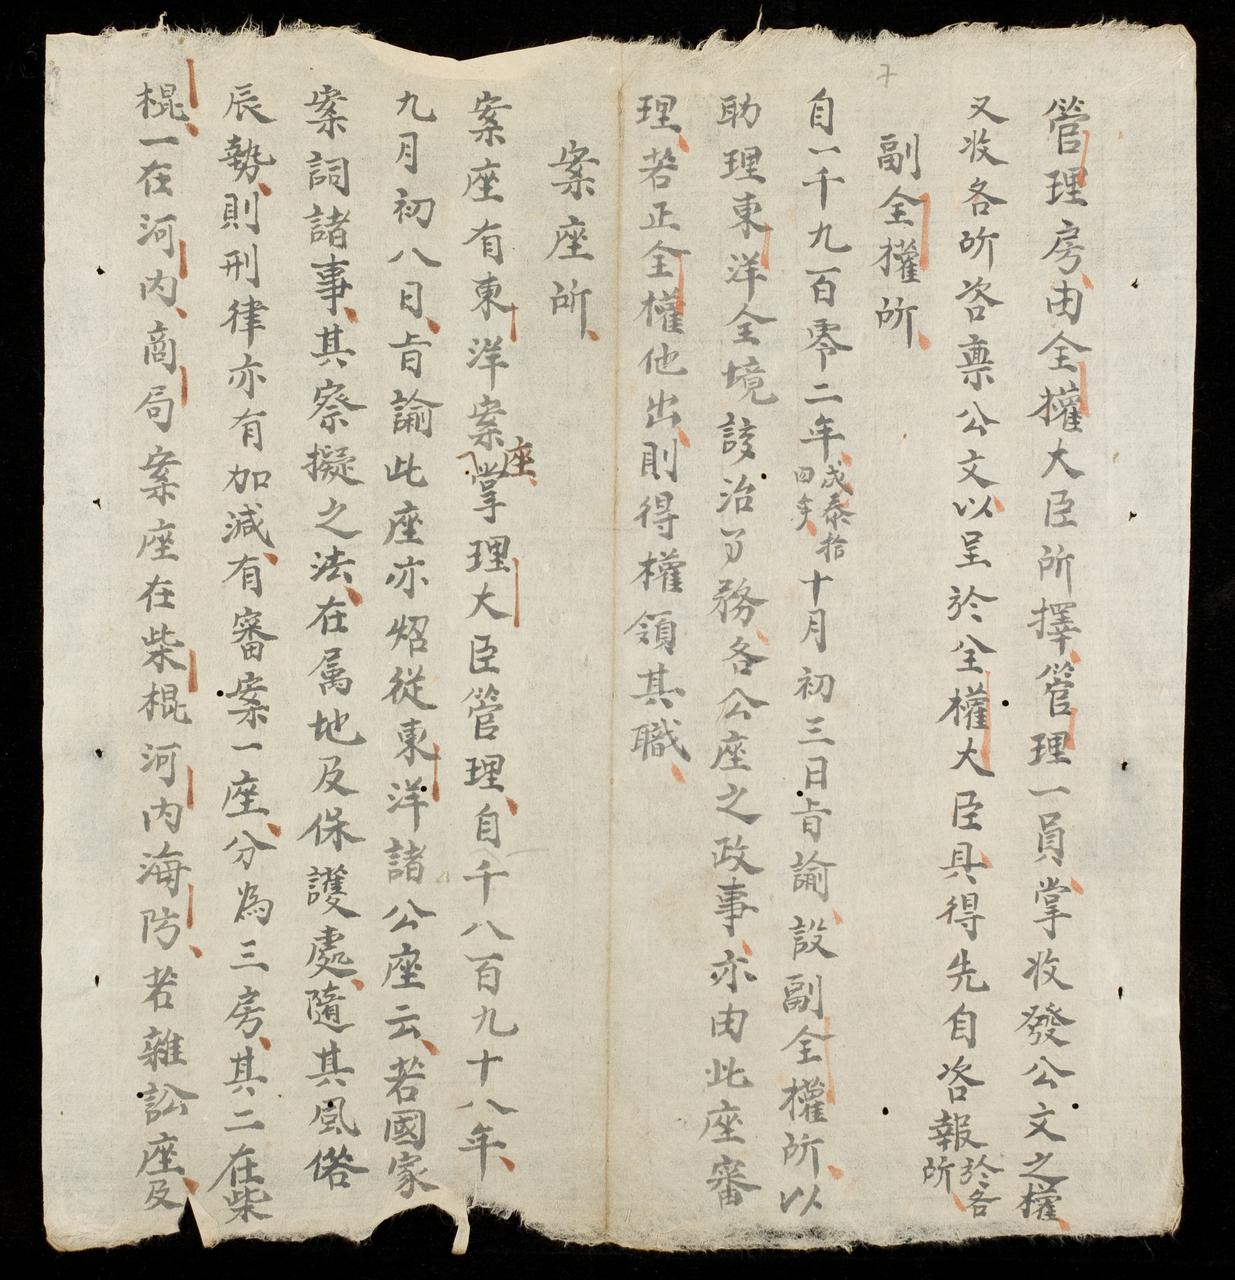 管理房由全權大臣所擇管理一員掌收發公文之權
又收各所咨稟公文以呈於全權大臣具得先自咨報於各所
副全權所
自一千九百零二年成泰拾四年十月初三日旨諭設副全權所以
助理東洋全境該治叼務各公座之政事亦由此座審
理若正全權他出則得權領其職
案座所
案座有東洋案座掌理大臣管理自千八百九十八年
九月初八日旨諭此座亦炤從東洋諸公座云若國家
案詞諸事其察擬之法在属地及保護處隨其風俗
辰勢則刑律亦有加減有審案一座分為三房其二在柴
棍一在河内商局案座在柴棍河内海防若雜訟座及